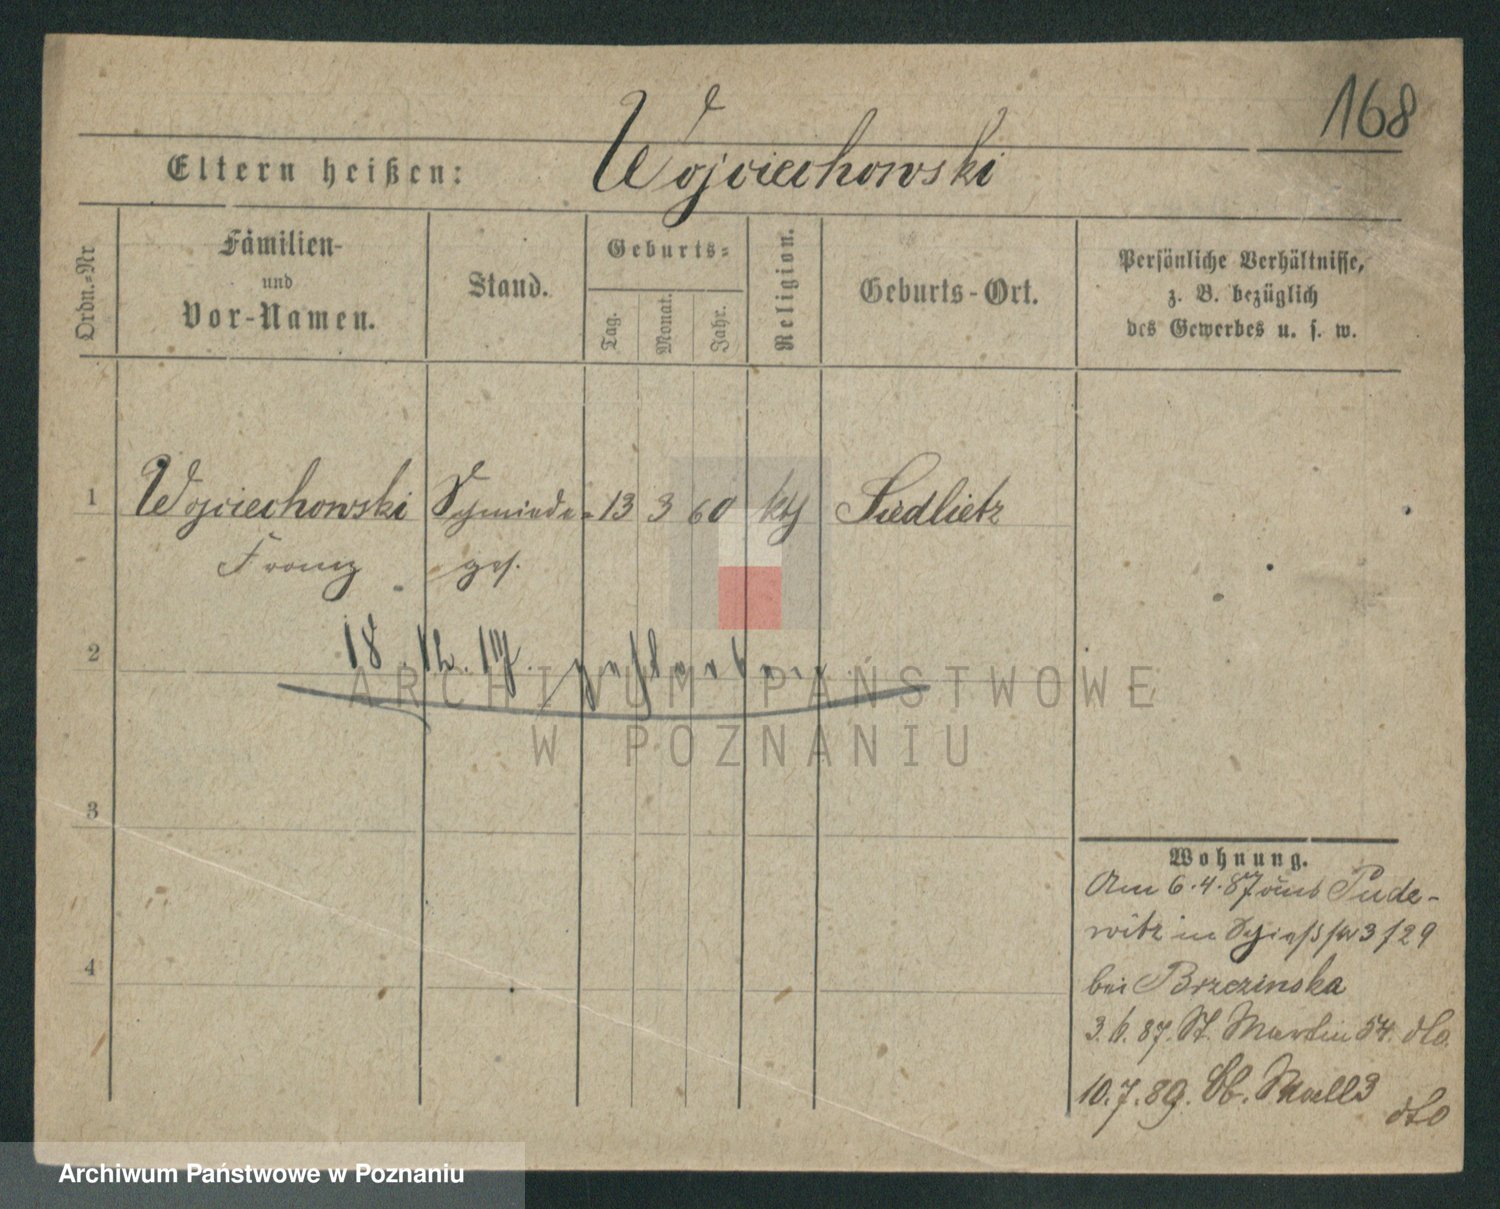 168
Eltern heißen: Wojciechowski
Ordn.=Nr
Familien-
und
Vor-Namen.
Stand.
Geburts=
Tag. Monat. Jahr.
Religion.
Geburts-Ort.
Persönliche Verhältnisse,
z. B. bezüglich
des Gewerbes u. s. w.
1 Wojciechowski Schmiede- 13 3 60 kth Siedlietz
Franz ges.
2
18. 12. 19. gestorben
ARCHIWUM PAŃSTWOWE
W POZNANIU
3
Wohnung.
Am 6.4.87 aus Pude-
witz in 3/29
bei Brzezinska
4
3. 6. 87. St. Martin 54. dto.
10.7.89. Ob. Wall 3
dto
Archiwum Państwowe w Poznaniu